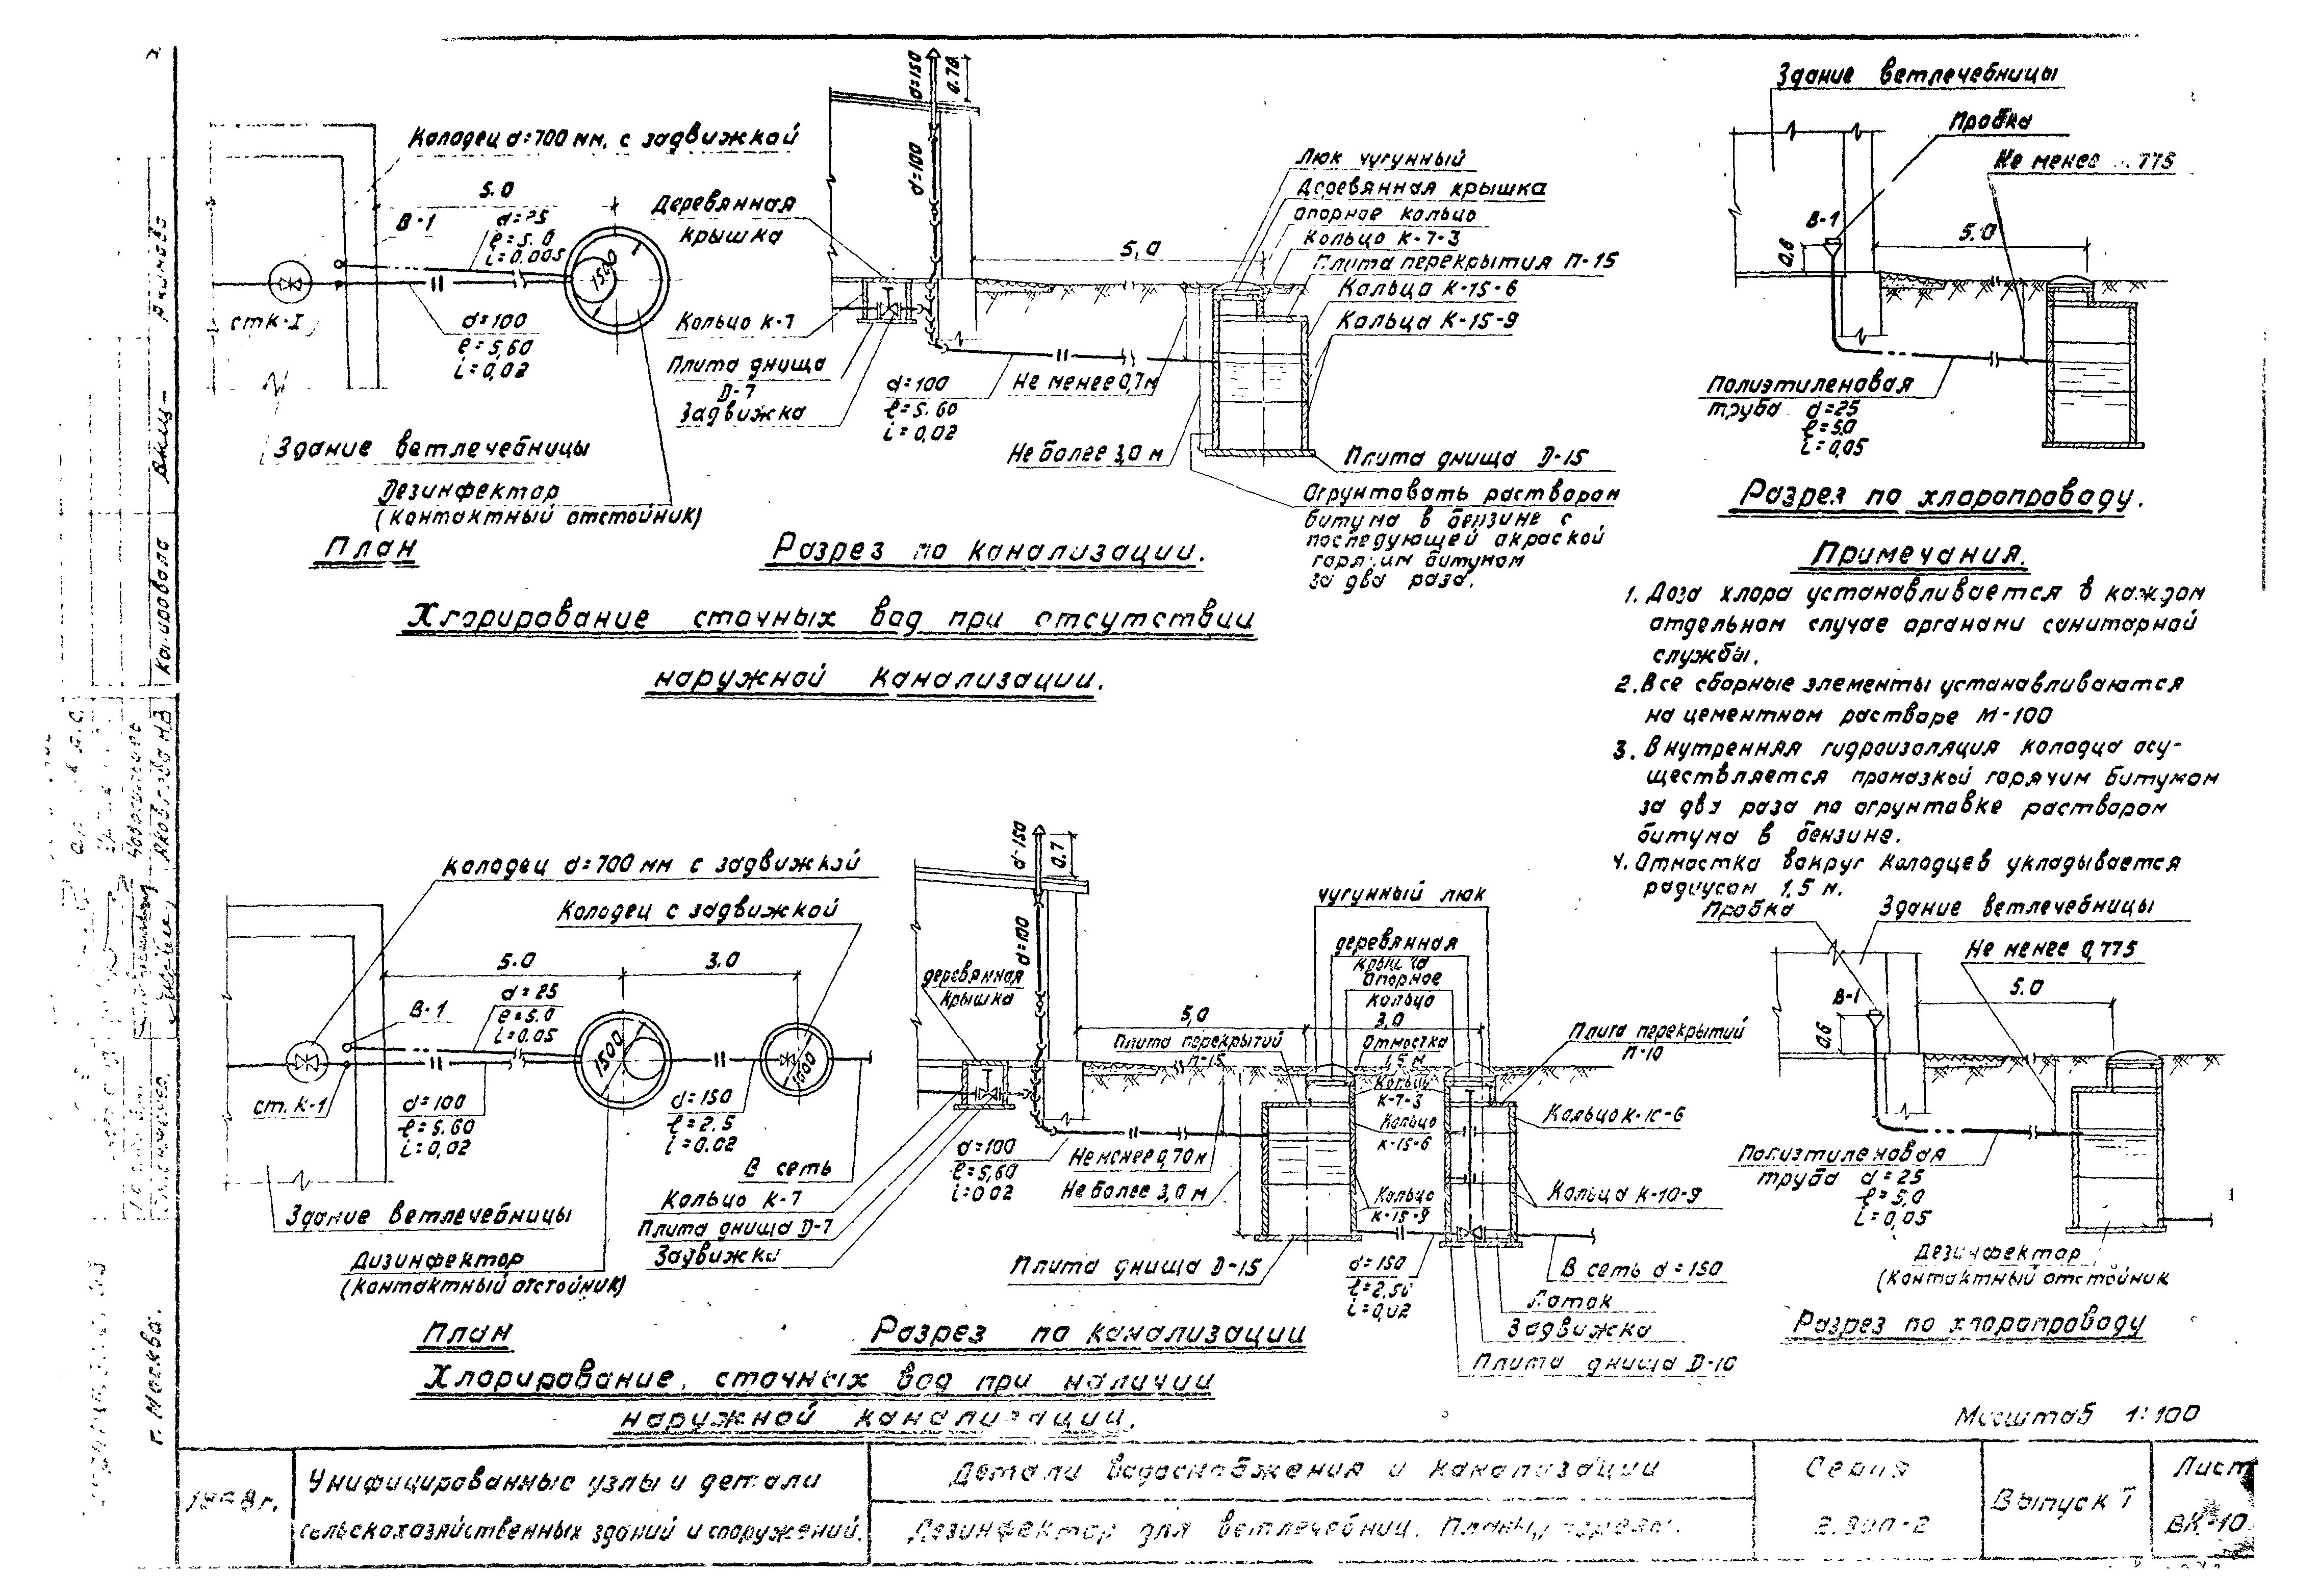 Колодец d=700 мм, с задвижкой
5.0
В-1
d=25
ℓ=5.0
i=0.005
1500
ст К-I
d=100
ℓ=5,60
i=0,02
Здание ветлечебницы
Дезинфектор
(контактный отстойник)
План
d=150
0.70
d=100
Деревянная
крышка
Кольцо К-7
Плита днища
D-7
Задвижка
5,0
d=100
ℓ=5.60
i=0,02
Не менее 0,7м
Не более 3,0 м
Люк чугунный
Деревянная крышка
опорное кольцо
Кольцо К-7-3
Плита перекрытия П-15
Кольца К-15-6
Кольца К-15-9
Плита днища D-15
Огрунтовать раствором
битума в бензине с
последующей окраской
горячим битумом
за два раза.
Разрез по канализации.
Хлорирование сточных вод при отсутствии
наружной канализации.
Здание ветлечебницы
Пробка
Не менее 0.775
В-1
0,6
5.0
Полиэтиленовая
труба d=25
ℓ=5.0
i=0,05
Разрез по хлоропроводу.
Примечания.
1. Доза хлора устанавливается в каждом
отдельном случае органами санитарной
службы.
2. Все сборные элементы устанавливаются
на цементном растворе М-100
3. Внутренняя гидроизоляция колодца осу-
ществляется промазкой горячим битумом
за два раза по огрунтовке раствором
битума в бензине.
4. Отмостка вокруг колодцев укладывается
радиусом 1,5 м.
Колодец d=700 мм с задвижкой
Колодец с задвижкой
5.0
3.0
В-1
d=25
ℓ=5.0
i=0.05
1500
1000
ст. К-1
d=100
ℓ=5.60
i=0,02
d=150
ℓ=2.5
i=0.02
В сеть
Здание ветлечебницы
Дизинфектор
(контактный отстойник)
План
d-150
0.7
d=100
деревянная
крышка
Кольцо К-7
Плита днища D-7
Задвижка
d=100
ℓ=5,60
i=0.02
5,0
Плита перекрытий
П-15
Не менее 0,70м
Не более 3,0 м
чугунный люк
деревянная
крышка
Опорное
кольцо
3,0
Отмостка
1,5 м
Кольцо
К-7-3
Кольцо
К-15-6
Кольцо
К-15-9
Плита перекрытий
П-10
Кольцо К-10-6
Кольца К-10-9
Плита днища D-15
d=150
ℓ=2,50
i=0,02
В сеть d=150
Лоток
Задвижка
Плита днища D-10
Разрез по канализации
Хлорирование, сточных вод при наличии
наружной канализации.
Пробка
Здание ветлечебницы
Не менее 0,775
В-1
0,6
5.0
Полиэтиленовая
труба d=25
ℓ=5,0
i=0,05
Дезинфектор
(контактный отстойник
Разрез по хлоропроводу
Масштаб 1:100
Унифицированные узлы и детали
сельскохозяйственных зданий и сооружений.
Детали водоснабжения и канализации
Дезинфектор для ветлечебниц. Планы, разрезы.
Серия
2.900-2
Выпуск I
Лист
ВК-10
Копировала
г. Москва.